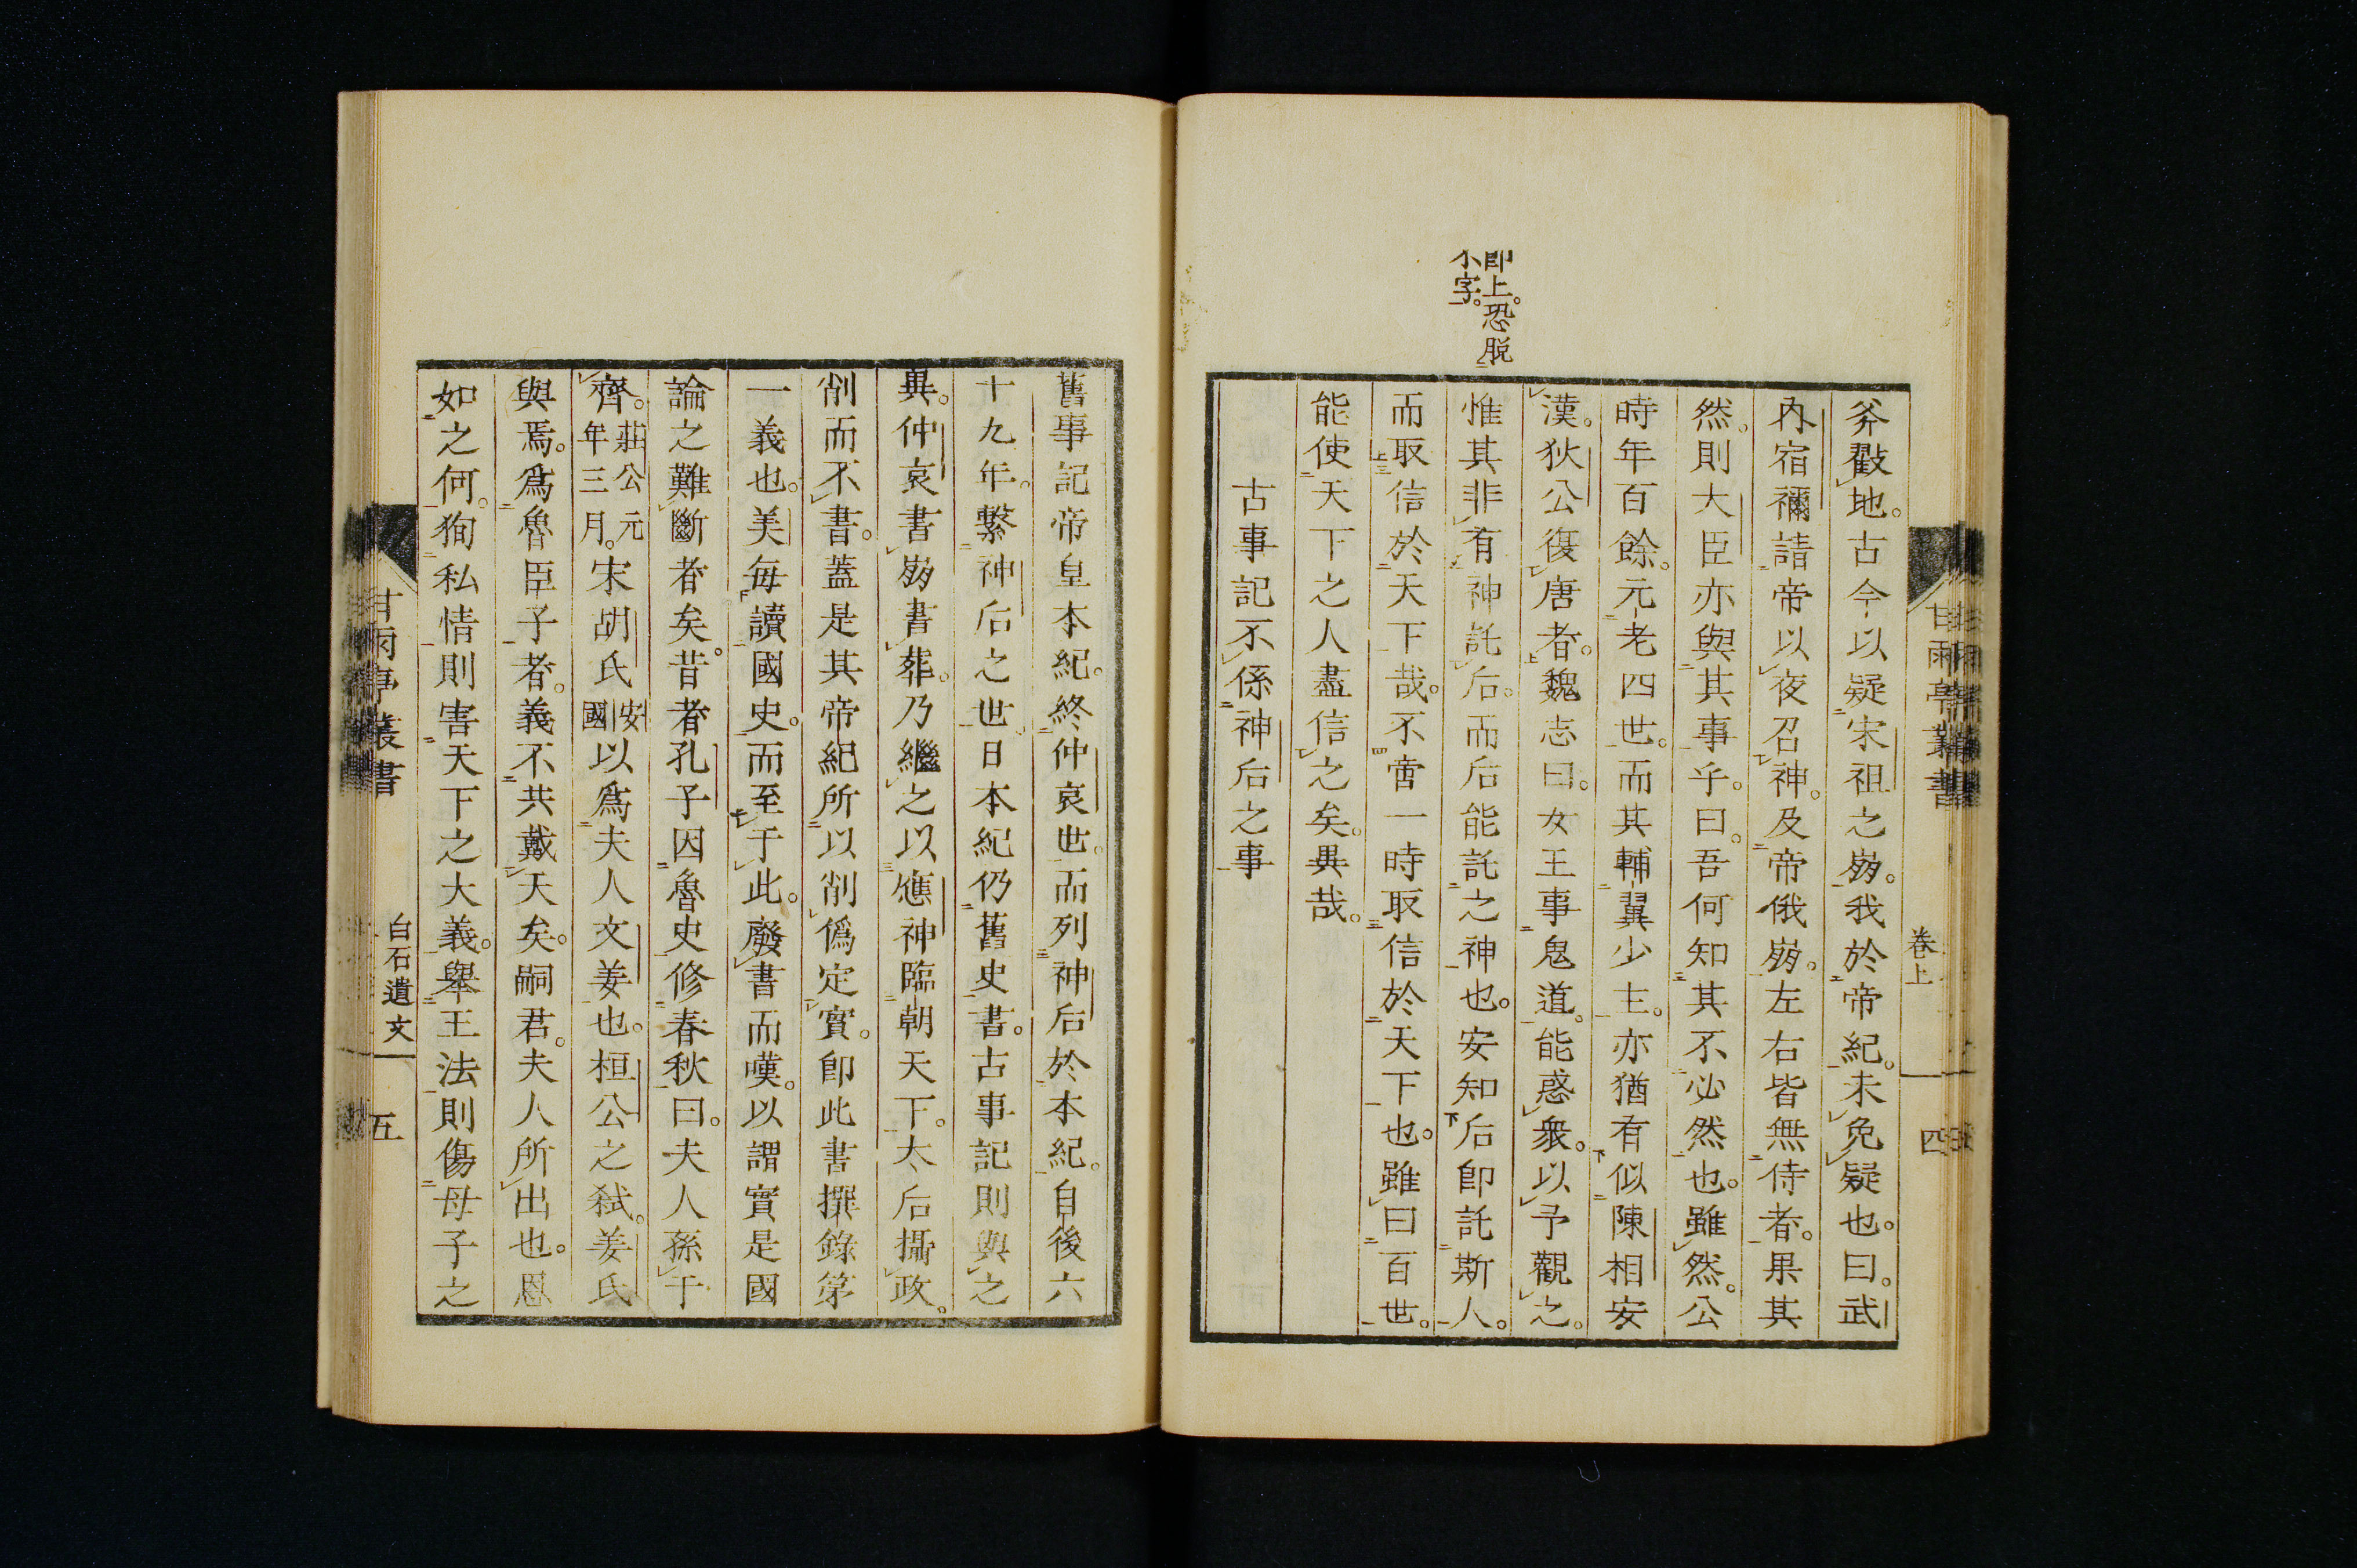 甘雨亭叢書
卷上
四
斧戳地。古今以疑宋祖之崩。我於帝紀。未免疑也。曰。武
內宿禰請帝以夜召神。及帝俄崩。左右皆無侍者。果其
然。則大臣亦與其事乎。曰。吾何知其不必然也。雖然。公
時年百餘。元老四世。而其輔翼少主。亦猶有似陳相安
漢。狄公復唐者。魏志曰。女王事鬼道。能惑衆。以予觀之。
惟其非有神託后。而后能託之神也。安知后卽託斯人。
而取信於天下哉。不啻一時取信於天下也。雖曰百世。
能使天下之人盡信之矣。異哉。
古事記不係神后之事
卽上。恐脫
不字。
舊事記帝皇本紀。終仲哀世。而列神后於本紀。自後六
十九年。繫神后之世。日本紀仍舊史書。古事記則與之
異。仲哀書崩書葬。乃繼之以應神臨朝天下。太后攝政。
削而不書。蓋是其帝紀所以削僞定實。卽此書撰錄第
一義也。美每讀國史。而至于此。廢書而嘆。以謂實是國
論之難斷者矣。昔者孔子因魯史修春秋曰。夫人孫于
齊。莊公元年三月。宋胡氏安國以爲夫人文姜也。桓公之弒。姜氏
與焉。爲魯臣子者。義不共戴天矣。嗣君。夫人所出也。恩
如之何。狥私情則害天下之大義。舉王法則傷母子之
甘雨亭叢書
白石遺文
五